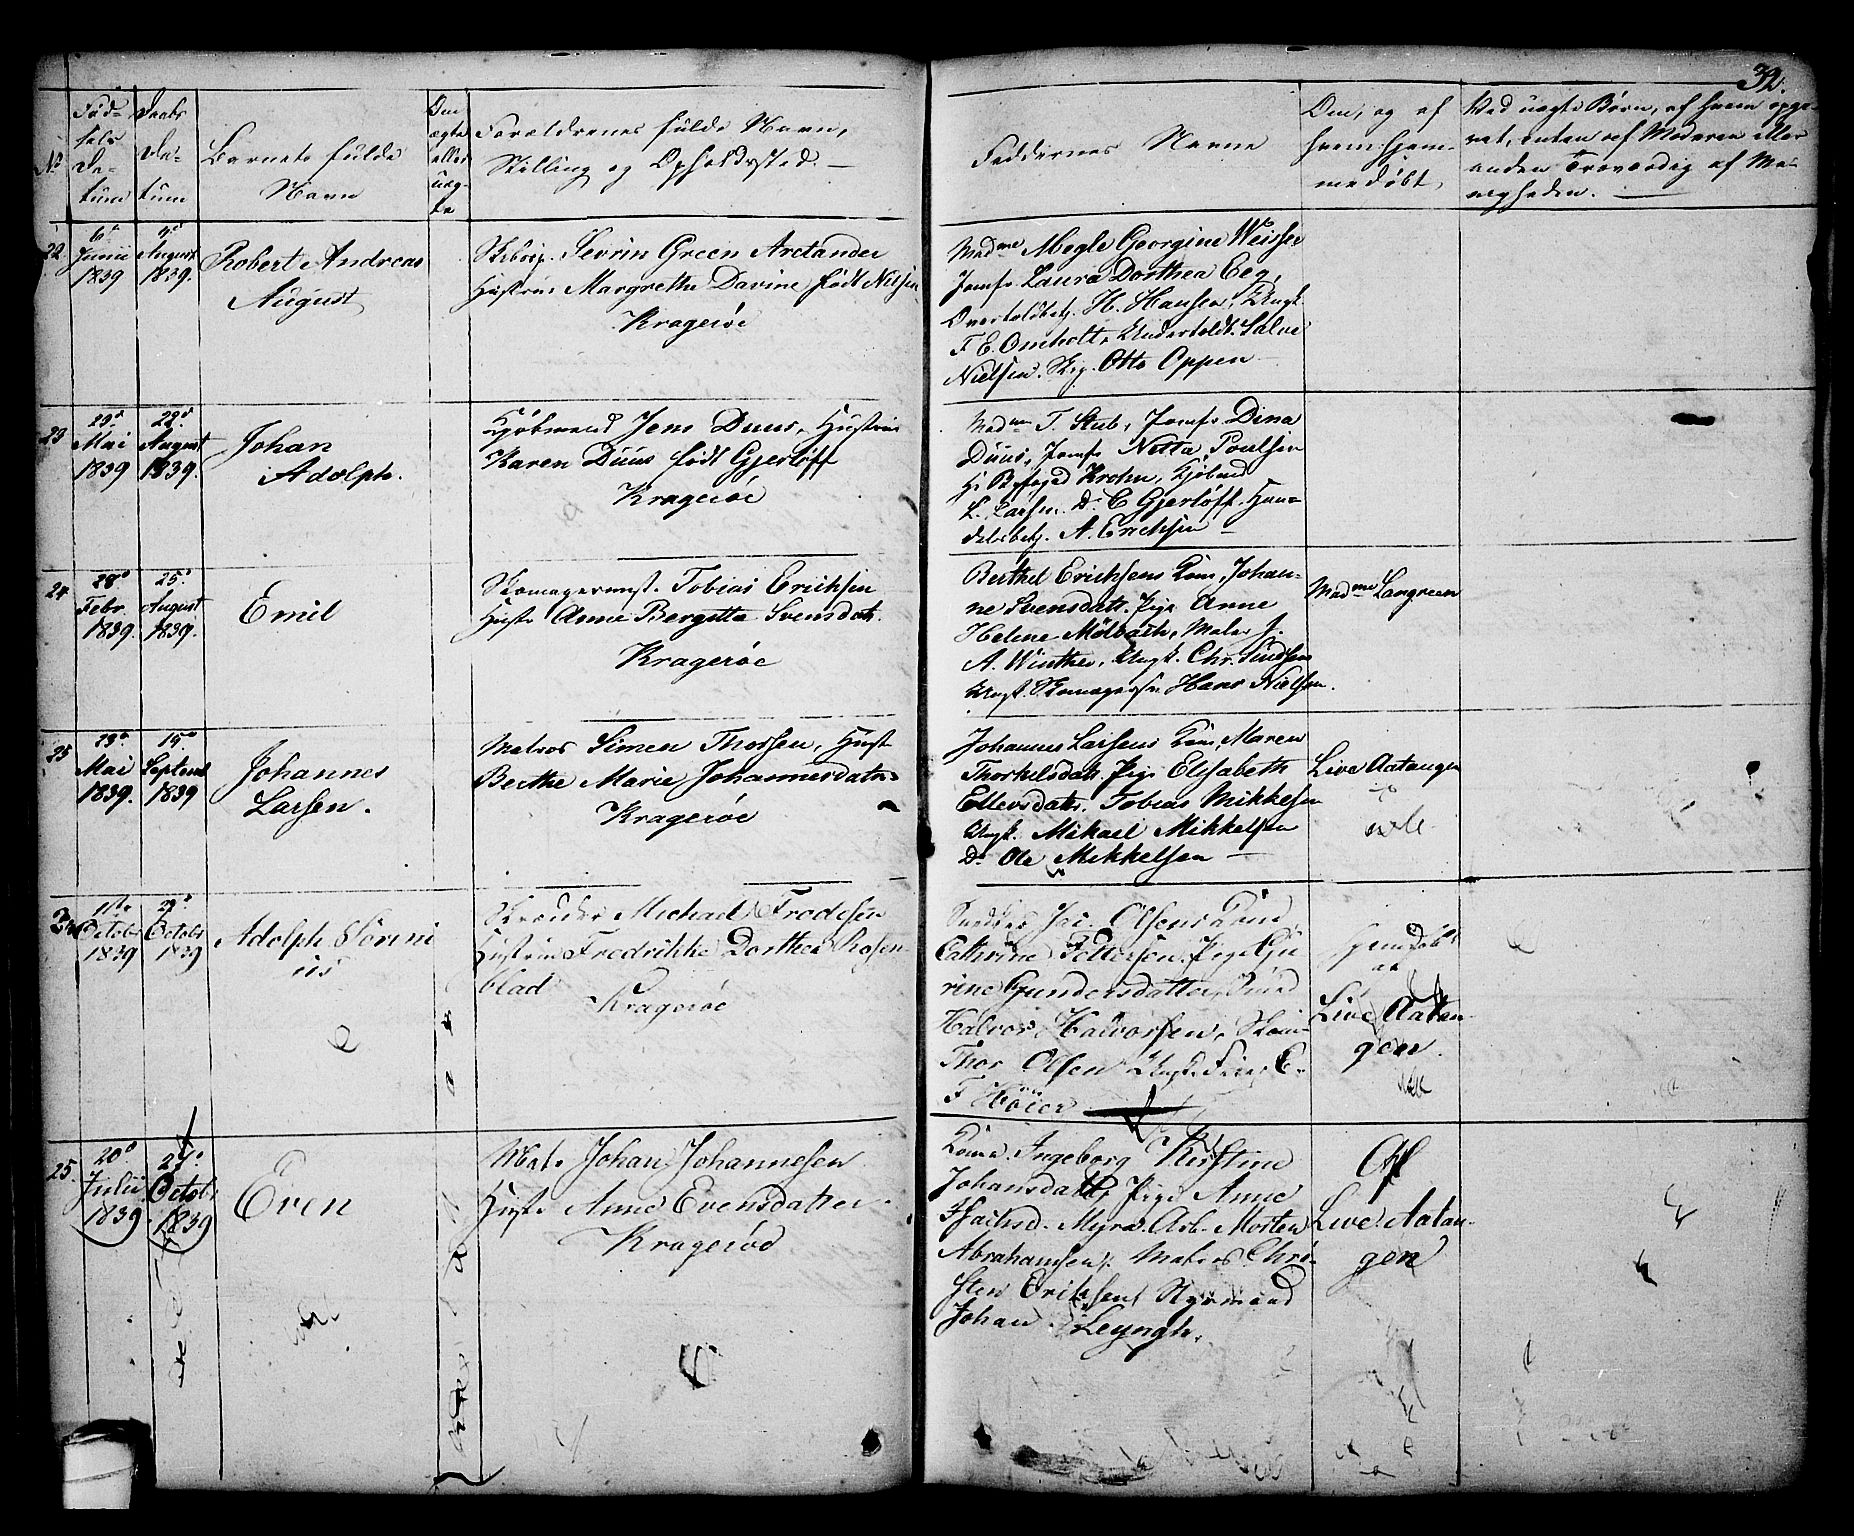 32.
No
Fød-
sels
Da-
tum
Daabs
Da-
tum
Barnets fulde
Navn
Om
ægte
eller
uæg-
te
Forældrenes fulde Navn,
Stilling og Opholdssted. —
Faddernes Navne
Om, og af
hvem hjem-
medøbt,
Ved uægte Børn, af hvem opgi-
vet, enten af Moderen eller
anden Troværdig af Me-
nigheden. —
22
6d
Junii
1839
August
1839.
Robert Andreas
August
Sevrin Green Arctander
Hustrue Margrethe Davine født Nielsen
Kragerøe
Madme Megle Georgine Weisser
Jomfr. Laura Dorthea Eeg,
Overtoldbetj. H. Hansen, Ungk.
F E. Omholt, Undertoldb. Salve
Nielsen. Otto Oppen
23
29d
Mai
1839
22d
August
1839.
Johan
Adolph.
Kjøbmand Jens Duus, Hustrue
Karen Duus født Gjerløff
Kragerøe
Madme T. Stub, Jomfr Dina
Duus, Jomfr Netta Poulsen
Hr Byfoged Krohn, Kjøbmd
L. Larsen. Do C Gjerløff. Han-
delsbetj. A. Erichsen —
24
28d
Febr.
1839.
25d
August
1839.
Emil
Skomagermst. Tobias Erichsen
Hustr Anne Bergitta Svensdatr.
Kragerøe
Berthel Erichsens Kone, Johan-
ne Svensdatr. Pige Anne
Helene Mølbach, Maler J.
A. Winther, Ungk. Chr. Knudsen
Ungk. Skomagersv. Hans Nielsen.
Madme Langreen
25
29d
Mai
1839.
15d
Septemb
1839
Johannes
Larsen.
Matros Simen Thorsen, Hustr
Berthe Marie Johannesdatr
Kragerøe
Johannes Larsens Kone, Maren
Thorkelsdatr. Pige Elisabeth
Ellevsdatr. Tobias Mikkelsen
Ungk. Mikael Mikkelsen
Do Ole Mikkelsen —
Live Aatangen
24
11te
Octobr
1839
Octobr
1839
Adolph Sørini
us
Skrædder Michael Frodesen
Hustrue Fredrikke Dorthea Rosen-
blad
Kragerøe
Snedker Jac. Olsens Kone
Cathrine Pettersen. Pige Gu
rine Gundersdatter,
Halvor Halvorsen,
Thor Olsen Ungk. E.
F Höier
Hjemdøbt
af
Live Aatan-
gen.
25.
20d
Julii
1839
27d
Octobr
1839
Even
Matr Johan Johannesen
Hustr Anne Evensdatter
Kragerøe
Kone Ingeborg Kirstine
Johansdattr, Pige Anne
Isachsd. Myra. Arb. Morten
Abrahamsen. Matros Chri-
sten Eriksen, Styrmand
Johan Leyngh.
Af
Live Aatan-
gen